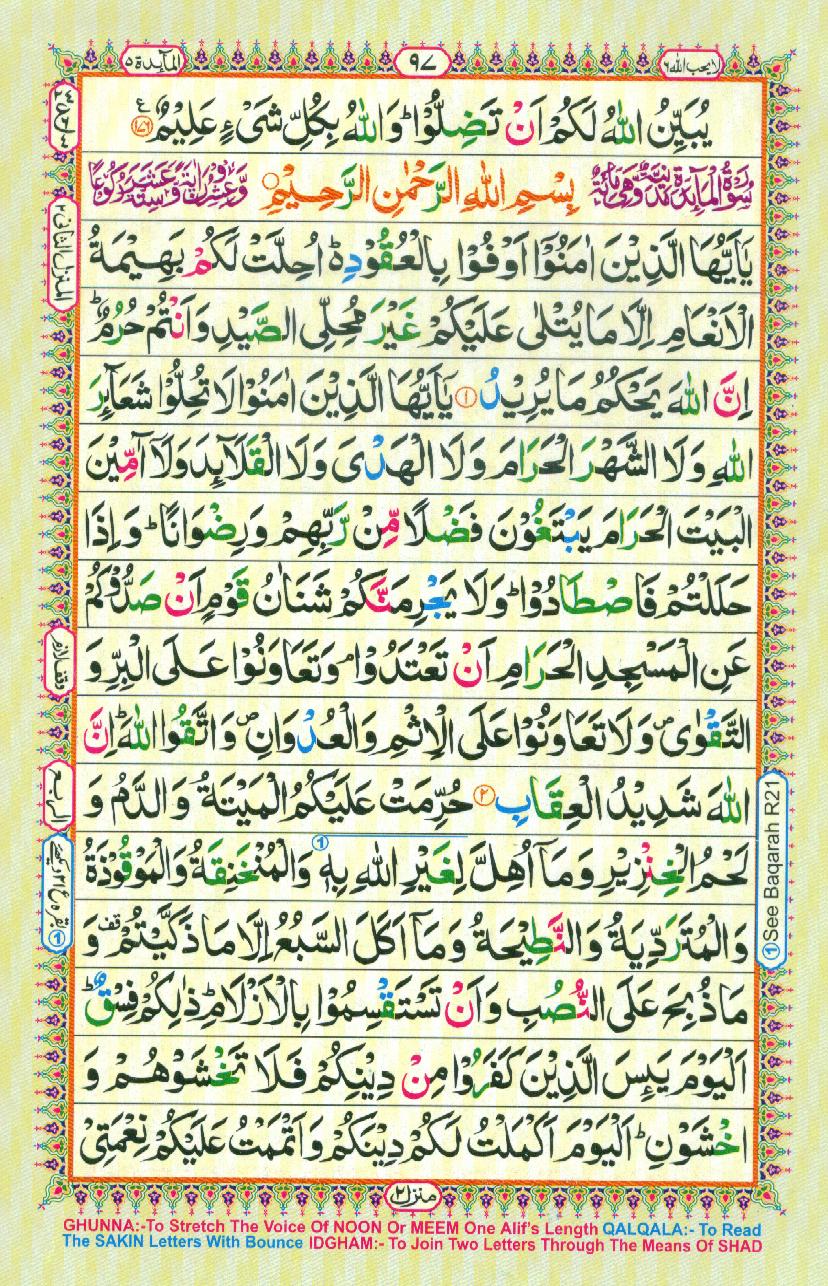 المآىدة ٥
٩٧
لا یحب اللہ ٦
یُبَیِّنُ اللّٰہُ لَکُمْ اَنْ تَضِلُّوْا ؕ وَاللّٰہُ بِکُلِّ شَیْءٍ عَلِیْمٌ ﴿۱۷۶﴾ ع
بِسْمِ اللّٰہِ الرَّحْمٰنِ الرَّحِیْمِ
یٰۤاَیُّهَا الَّذِیْنَ اٰمَنُوْۤا اَوْفُوْا بِالْعُقُوْدِ ؕ اُحِلَّتْ لَکُمْ بَهِیْمَةُ
الْاَنْعَامِ اِلَّا مَا یُتْلٰی عَلَیْکُمْ غَیْرَ مُحِلِّی الصَّیْدِ وَاَنْتُمْ حُرُمٌ ؕ
اِنَّ اللّٰہَ یَحْکُمُ مَا یُرِیْدُ ﴿۱﴾ یٰۤاَیُّهَا الَّذِیْنَ اٰمَنُوْا لَا تُحِلُّوْا شَعَآئِرَ
اللّٰہِ وَلَا الشَّهْرَ الْحَرَامَ وَلَا الْهَدْیَ وَلَا الْقَلَآئِدَ وَلَاۤ آٰمِّیْنَ
الْبَیْتَ الْحَرَامَ یَبْتَغُوْنَ فَضْلًا مِّنْ رَّبِّهِمْ وَرِضْوَانًا ؕ وَاِذَا
حَلَلْتُمْ فَاصْطَادُوْا ؕ وَلَا یَجْرِمَنَّکُمْ شَنَاٰنُ قَوْمٍ اَنْ صَدُّوْکُمْ
عَنِ الْمَسْجِدِ الْحَرَامِ اَنْ تَعْتَدُوْا ۘ وَتَعَاوَنُوْا عَلَی الْبِرِّ وَ
التَّقْوٰی ۪ وَلَا تَعَاوَنُوْا عَلَی الْاِثْمِ وَالْعُدْوَانِ ۪ وَاتَّقُوا اللّٰہَ ؕ اِنَّ
اللّٰہَ شَدِیْدُ الْعِقَابِ ﴿۲﴾ حُرِّمَتْ عَلَیْکُمُ الْمَیْتَةُ وَالدَّمُ وَ
لَحْمُ الْخِنْزِیْرِ وَمَاۤ اُهِلَّ لِغَیْرِ اللّٰہِ بِهٖ وَالْمُنْخَنِقَةُ وَالْمَوْقُوْذَةُ
وَالْمُتَرَدِّیَةُ وَالنَّطِیْحَةُ وَمَاۤ اَکَلَ السَّبُعُ اِلَّا مَا ذَکَّیْتُمْ قف وَ
مَا ذُبِحَ عَلَی النُّصُبِ وَاَنْ تَسْتَقْسِمُوْا بِالْاَزْلَامِ ؕ ذٰلِکُمْ فِسْقٌ ؕ
اَلْیَوْمَ یَئِسَ الَّذِیْنَ کَفَرُوْا مِنْ دِیْنِکُمْ فَلَا تَخْشَوْهُمْ وَ
اخْشَوْنِ ؕ اَلْیَوْمَ اَکْمَلْتُ لَکُمْ دِیْنَکُمْ وَاَتْمَمْتُ عَلَیْکُمْ نِعْمَتِیْ
المنزل الثانی ۲
وقف لازم
الربع
① See Baqarah R21
منزل ۲
GHUNNA:-To Stretch The Voice Of NOON Or MEEM One Alif's Length QALQALA:- To Read
The SAKIN Letters With Bounce IDGHAM:- To Join Two Letters Through The Means Of SHAD